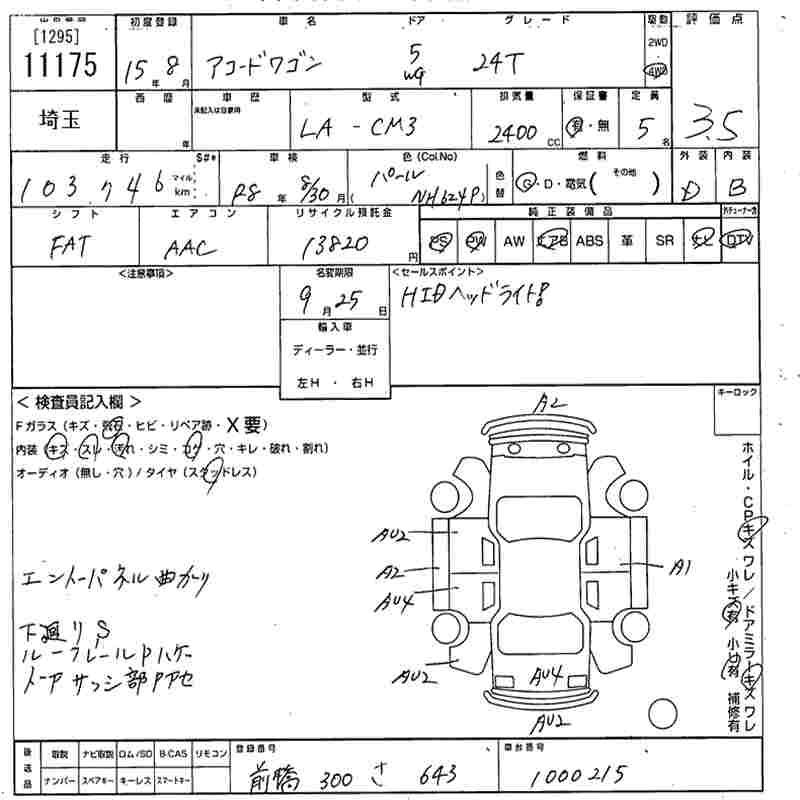 [1295]
11175
初度登録
15年8月
車名
アコードワゴン
ドア
5
wg
グレード
24T
駆動
2WD
4WD
評価点
3.5
埼玉
西暦
年
車歴
未記入は自家用
型式
LA - CM3
排気量
2400cc
保証書
有・無
定員
5名
走行
103,746
マイル
km
S#*
車検
R8年8/30月
色(Col.No)
パール
(NH624P)
色替
燃料
G・D・電気( その他 )
外装
D
内装
B
シフト
FAT
エアコン
AAC
リサイクル預託金
13820円
純正装備品
PS PW AW エアB ABS 革 SR ナビ
TV
<注意事項>
名変期限
9月25日
輸入車
ディーラー・並行
左H・右H
<セールスポイント>
HIDヘッドライト!
<検査員記入欄>
キーロック
Fガラス(キズ・飛石・ヒビ・リペア跡・X要)
内装(キズ・スレ・汚れ・シミ・コゲ・穴・キレ・破れ・割れ)
オーディオ(無し・穴)/タイヤ(スタッドレス)
A2
AU2
A2
AU4
A1
AU2
AU4
AU2
下廻りS
ルーフレールPハゲ
ホイル・CPキズワレ/ドアミラーキズワレ
小キズ有 小凹有 補修有
後送品
取説 ナビ取説 ロム/SD B-CAS リモコン
ナンバー スペアキー キーレス スマートキー
登録番号
前橋 300 さ 643
車台番号
1000215